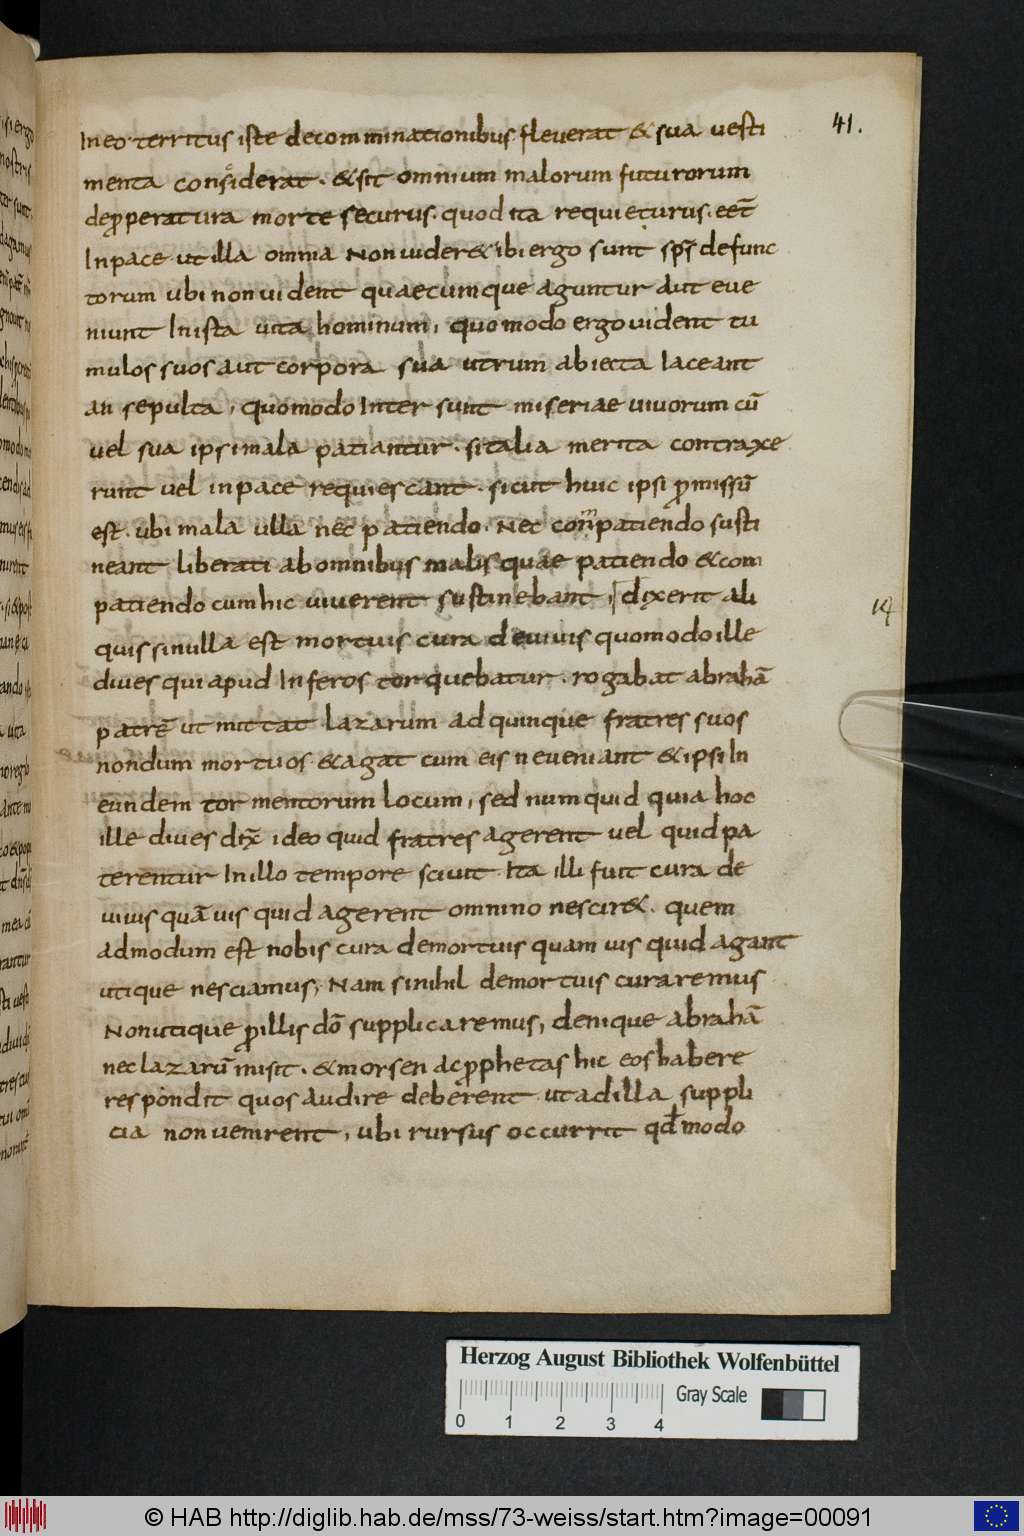 41.
In eo territus iste decomminationibus. fleverat & sua vesti
menta consciderat. & sit omnium malorum futurorum
deproperatura morte securus. quod ita requieturus. eet̄
In pace ut illa omnia Non vider& ibi ergo sunt sps̄ defunc
torum ubi non vident quaecumque aguntur aut eve
niunt In ista vita hominum, quomodo ergo vident tu
mulos suos aut corpora sua utrum abiecta Iaceant
an sepulta, quomodo Inter sunt miseriae vivorum cū
vel sua ipsi mala patiantur. si talia merita contraxe
runt vel in pace requiescant. sicut huic ipsi ꝓmissū
est. ubi mala ulla nec patiendo. Nec conpatiendo susti
neant liberati ab omnibus malis quae patiendo & com
patiendo cum hic viverent sustinebant, dixerit ali
14
quis si nulla est mortuis cura de vivis quomodo ille
dives qui apud Inferos torquebatur. rogabat abrahā
patrē ut mittat lazarum ad quinque fratres suos
nondum mortuos & agat cum eis ne veniant & ipsi In
eundem tormentorum locum, sed num quid quia hoc
ille dives dix̄ ideo quid fratres agerent vel quid pa
terentur In illo tempore scivit. Ita illi fuit cura de
vivis quāvis quid agerent omnino nescir&. quem
admodum est nobis cura demortuis quamvis quid agant
utique nesciamus, Nam si nihil demortuis curaremus
Non utique ꝓ illis dō supplicaremus, denique abrahā
nec lazarū misit. & morsen ac ꝓphetas hic eos habere
respondit quos audire deberent ut ad illa suppli
cia non venirent, ubi rursus occurrit qd̄ modo
Herzog August Bibliothek Wolfenbüttel
Gray Scale
0 1 2 3 4
© HAB http://diglib.hab.de/mss/73-weiss/start.htm?image=00091